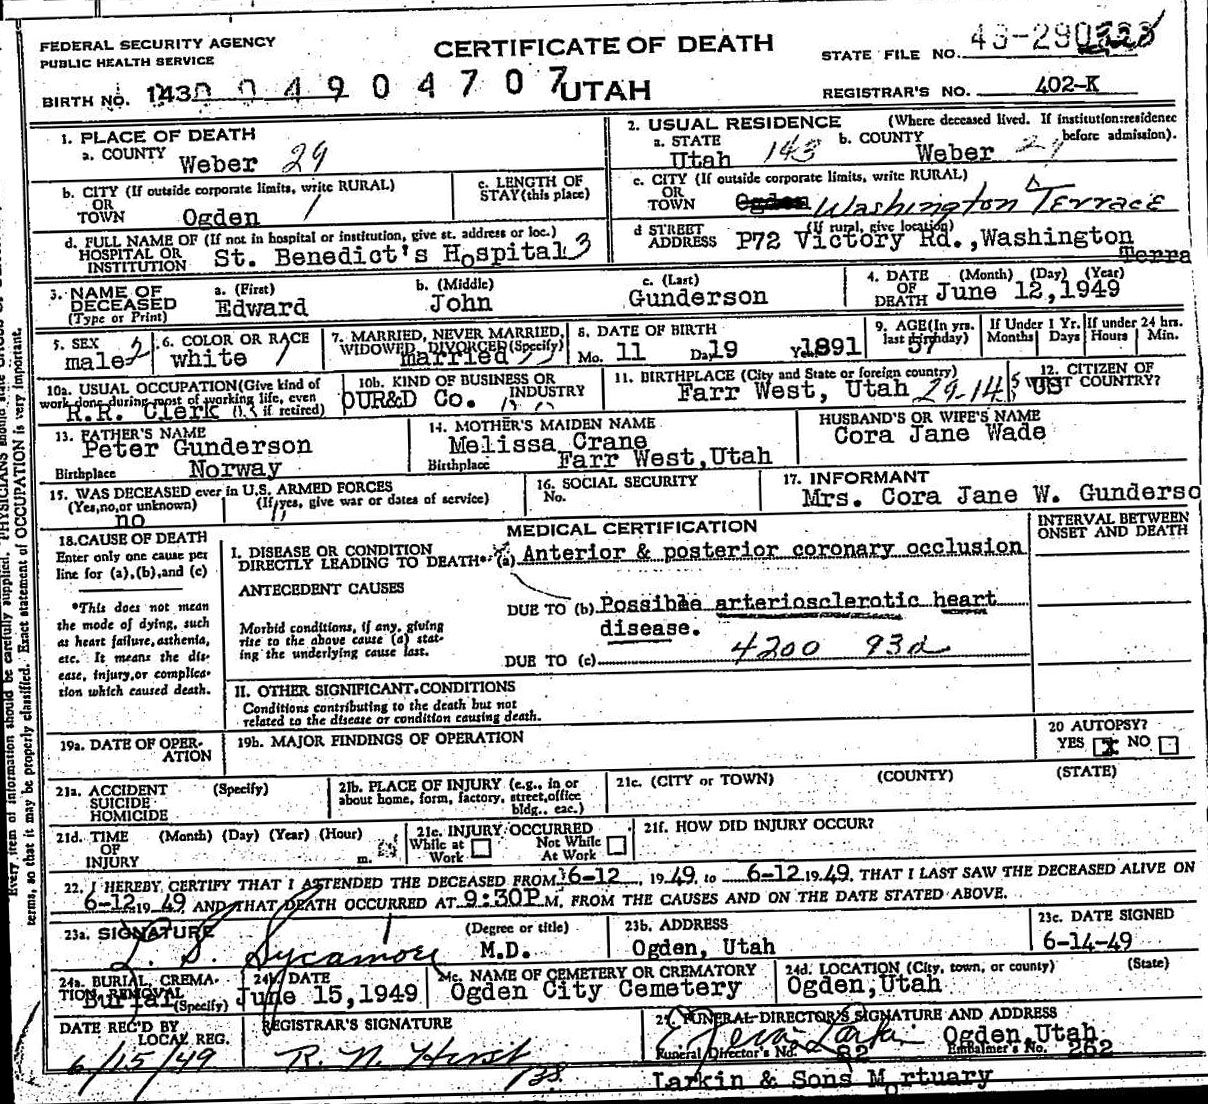 FEDERAL SECURITY AGENCY
PUBLIC HEALTH SERVICE
CERTIFICATE OF DEATH
STATE FILE NO. 43-290
BIRTH NO. 143 0 4 9 0 4 7 0 7
UTAH
REGISTRAR'S NO. 402-K
1. PLACE OF DEATH
a. COUNTY Weber 29
2. USUAL RESIDENCE (Where deceased lived. If institution:residence before admission).
a. STATE Utah 143 b. COUNTY Weber 29
b. CITY (If outside corporate limits, write RURAL)
OR
TOWN Ogden 1
c. LENGTH OF
STAY(this place)
c. CITY (If outside corporate limits, write RURAL)
OR
TOWN Ogden Washington Terrace
d. FULL NAME OF (If not in hospital or institution, give st. address or loc.)
HOSPITAL OR
INSTITUTION St. Benedict's Hospital 3
d STREET (If rural, give location)
ADDRESS P72 Victory Rd.,Washington
Terra
3. NAME OF
DECEASED
(Type or Print)
a. (First) Edward
b. (Middle) John
c. (Last) Gunderson
4. DATE (Month) (Day) (Year)
OF
DEATH June 12,1949
5. SEX
male 2
6. COLOR OR RACE
white 1
7. MARRIED, NEVER MARRIED,
WIDOWED, DIVORCED(Specify)
married
8. DATE OF BIRTH
Mo. 11 Day 19 Yr. 1891
9. AGE(In yrs.
last birthday)
57
If Under 1 Yr.
Months Days
If under 24 hrs.
Hours Min.
10a. USUAL OCCUPATION(Give kind of
work done during most of working life, even
if retired)
R.R. Clerk
10b. KIND OF BUSINESS OR
INDUSTRY
OUR&D Co.
11. BIRTHPLACE (City and State or foreign country)
Farr West, Utah 29-14
12. CITIZEN OF
WHAT COUNTRY?
US
13. FATHER'S NAME
Peter Gunderson
Birthplace Norway
14. MOTHER'S MAIDEN NAME
Melissa Crane
Birthplace Farr West,Utah
HUSBAND'S OR WIFE'S NAME
Cora Jane Wade
15. WAS DECEASED ever in U.S. ARMED FORCES
(Yes,no,or unknown) (If yes, give war or dates of service)
no
16. SOCIAL SECURITY
No.
17. INFORMANT
Mrs. Cora Jane W. Gunderso
18.CAUSE OF DEATH
Enter only one cause per
line for (a),(b),and (c)
*This does not mean
the mode of dying, such
as heart failure, asthenia,
etc. It means the dis-
ease, injury,or complica-
tion which caused death.
MEDICAL CERTIFICATION
INTERVAL BETWEEN
ONSET AND DEATH
I. DISEASE OR CONDITION
DIRECTLY LEADING TO DEATH* (a) Anterior & posterior coronary occlusion
ANTECEDENT CAUSES
DUE TO (b) Possible arteriosclerotic heart
disease.
Morbid conditions, if any, giving
rise to the above cause (a) stat-
ing the underlying cause last.
DUE TO (c) 4200 93d
II. OTHER SIGNIFICANT CONDITIONS
Conditions contributing to the death but not
related to the disease or condition causing death.
19a. DATE OF OPER-
ATION
19b. MAJOR FINDINGS OF OPERATION
20 AUTOPSY?
YES X NO
21a. ACCIDENT (Specify)
SUICIDE
HOMICIDE
21b. PLACE OF INJURY (e.g., in or
about home, form, factory, street,office
bldg., eac.)
21c. (CITY or TOWN) (COUNTY) (STATE)
21d. TIME (Month) (Day) (Year) (Hour)
OF
INJURY m.
21e. INJURY OCCURRED
While at Work Not While At Work
21f. HOW DID INJURY OCCUR?
22. I HEREBY CERTIFY THAT I ATTENDED THE DECEASED FROM 6-12, 1949, to 6-12 1949. THAT I LAST SAW THE DECEASED ALIVE ON
6-12 19 49 AND THAT DEATH OCCURRED AT 9:30P M, FROM THE CAUSES AND ON THE DATE STATED ABOVE.
23a. SIGNATURE (Degree or title)
L. S. Sycamore M.D.
23b. ADDRESS
Ogden, Utah
23c. DATE SIGNED
6-14-49
24a. BURIAL, CREMA-
TION, REMOVAL (Specify)
Burial
24b. DATE
June 15,1949
24c. NAME OF CEMETERY OR CREMATORY
Ogden City Cemetery
24d. LOCATION (City, town, or county) (State)
Ogden,Utah
DATE REC'D BY
LOCAL REG.
6/15/49
REGISTRAR'S SIGNATURE
R. N. Hirst
25. FUNERAL DIRECTOR'S SIGNATURE AND ADDRESS
Larkin Ogden,Utah
Funeral Director's No. 82 Embalmer's No. 262
Larkin & Sons Mortuary
Every item of information should be carefully supplied. PHYSICIANS should
terms, so that it may be properly classified. Exact statement of OCCUPATION is very important.